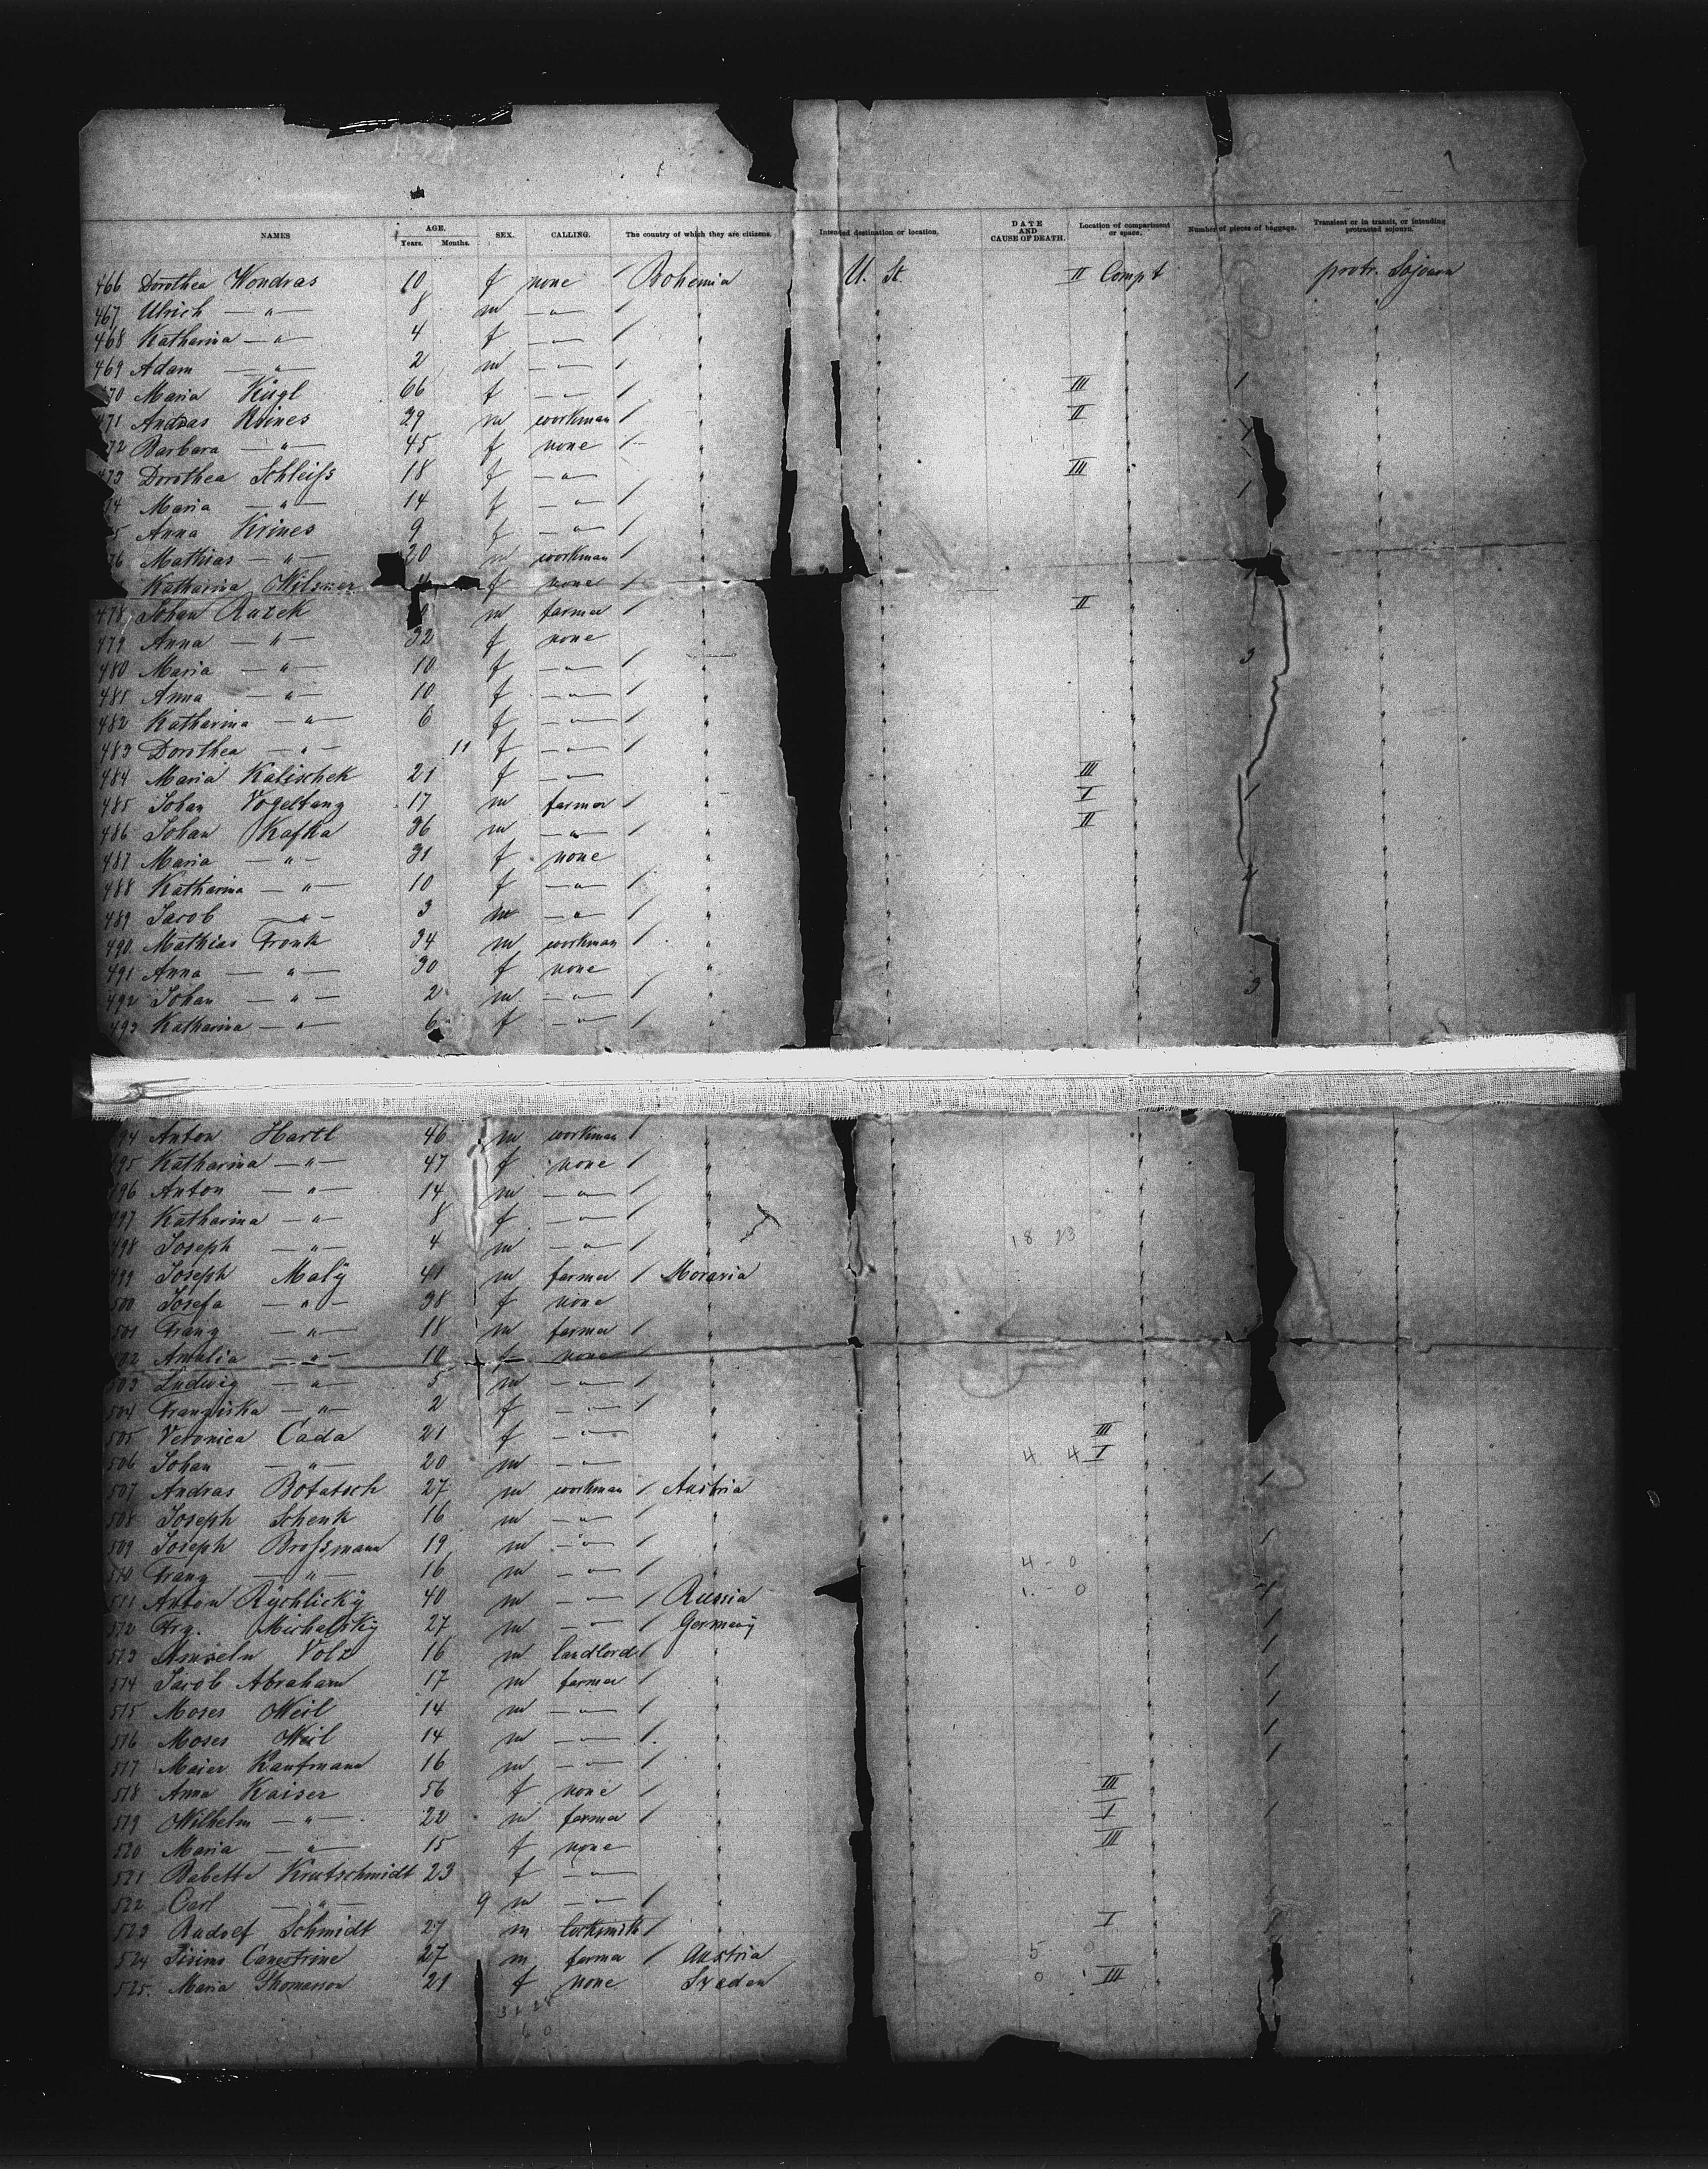 NAMES AGE. Years. Months. SEX. CALLING. The country of which they are citizens. Intended destination or location. DATE AND CAUSE OF DEATH. Location of compartment or space. Number of pieces of baggage. Transient or in transit, or intending protracted sojourn.
466 Dorothea Wondras 10 f none / Bohemia U. St. II Compt protr. Sojourn
467 Ulrich — " — 8 m — " — /
468 Katharina — " — 4 f — " — /
469 Adam — " — 2 m — " — /
70 Maria Kügl 66 f — " — / " III 1
71 Andras 29 m workman / II
72 Barbara — " — 45 f none / "
473 Dorothea Schleiss 18 f — " — " III
74 Maria — " — 14 f — " — / " 1
5 Anna Krines 9 f — " — / "
76 Mathias — " — 20 m workman / "
Katharina f none /
478 Johan Razek m farmer / " II
479 Anna — " — 32 f none "
480 Maria — " — 10 f — " — / " 3
481 Anna — " — 10 f — " — / "
482 Katharina — " — 6 f — " — / "
483 Dorothea — " — 11 f — " — / "
484 Maria Kalischek 21 f — " — " III
485 Johan Vogeltanz 17 m farmer / " I 1
486 Johan Kafka 36 m — " — / " II
487 Maria — " — 31 f none "
488 Katharina — " — 10 f — " — / " 4
489 Jacob — " — 3 m — " — / "
490 Mathias Tronk 34 m workman / "
491 Anna — " — 30 f none "
492 Johan — " — 2 m — " — / " 3
493 Katharina — " — 6 f — " — / "
94 Anton Hartl 46 m workman / "
95 Katharina — " — 47 f none / "
96 Anton — " — 14 m — " — / "
97 Katharina — " — 8 f — " — / "
498 Joseph — " — 4 m — " — / " 18 23
499 Joseph Malÿ 41 m farmer / Moravia
500 Josefa — " — 38 f none "
501 Franz — " — 18 m farmer / "
502 Amalia — " — 10 f none
503 Ludwig — " — 5 m — " — / "
504 Franziska — " — 2 f — " — / "
505 Veronica Cada 21 f — " — " III
506 Johan — " — 20 m — " — " 4 4 I
507 Andras Botatsch 27 m workman / Austria 1
508 Joseph Schenk 16 m — " — / "
509 Joseph Brossmann 19 m — " — / " 1
510 Franz — " — 16 m — " — / " 4 - 0
511 Anton Rÿchlickÿ 40 m — " — / Russia 1 - 0 1
512 Frz. Michalskÿ 27 m — " — / Germany 1
513 Volz 16 m landlord / " 1
514 Jacob Abraham 17 m farmer / " 1
515 Moses Weil 14 m — " — / " 1
516 Moses Weil 14 m — " — / " 1
517 Maier Kaufmann 16 m — " — / " 1
518 Anna Kaiser 56 f none / " III
519 Wilhelm — " — 22 m farmer / " I 1
520 Maria — " — 15 f none " III
521 Babette Krutschmidt 23 f — " — "
522 Carl — " — 9 m — " — / "
523 Rudolf Schmidt 27 m locksmith / " I 1
524 Canestrine 27 m farmer / Austria 5 0
525. Maria Thomasson 21 f none Sweden 0 III